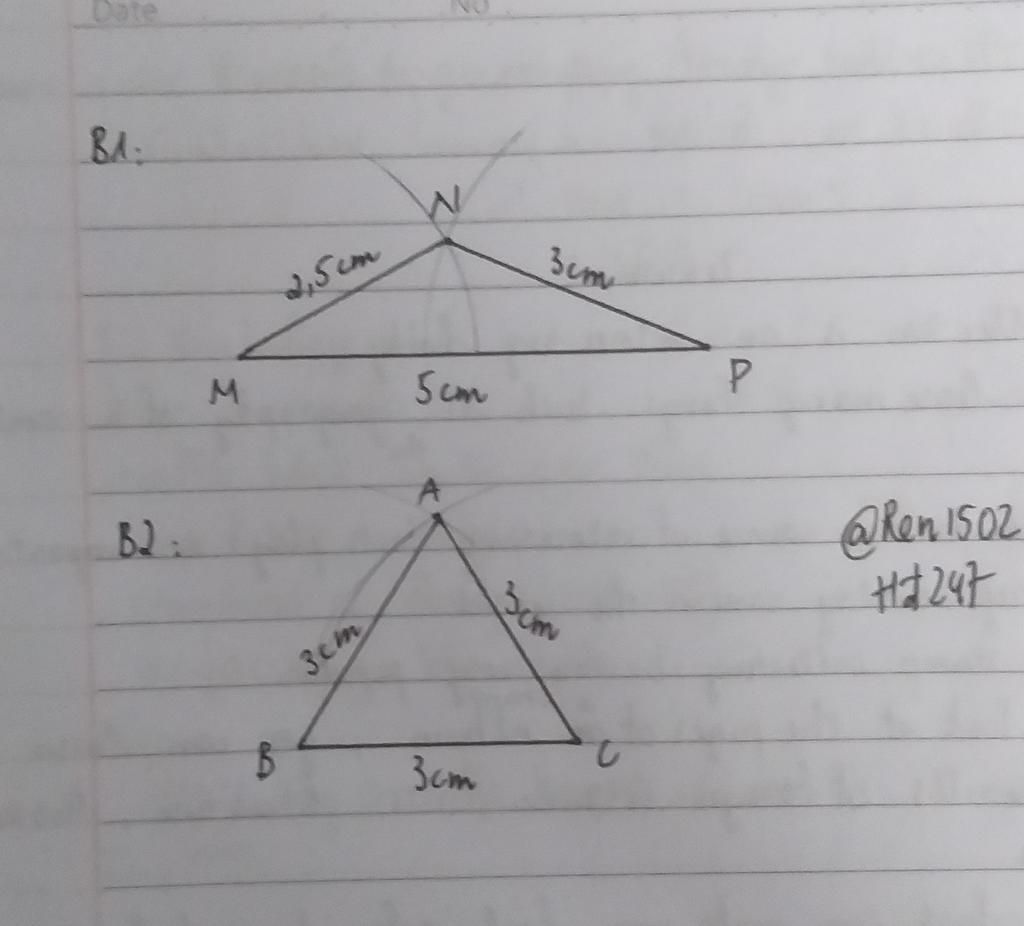 Date No
B1:
N
2,5cm 3cm
M 5cm P
A
B2:
@Ren1502
3cm
3cm
B C
3cm